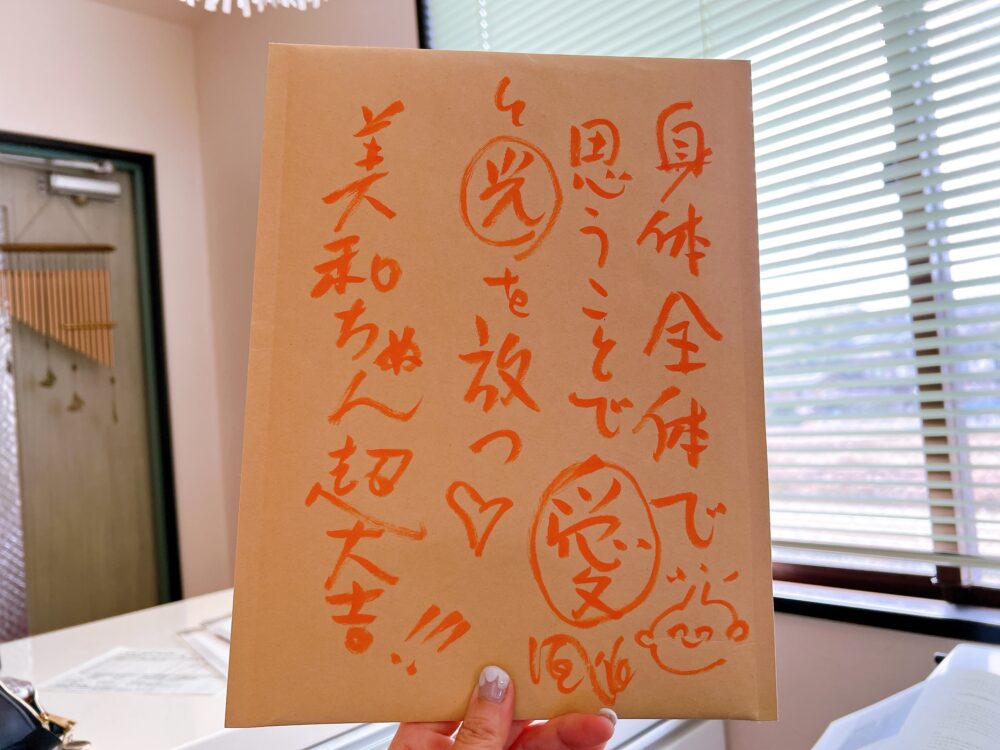 身体全体で
思うことで愛
と光を放つ♡
美和ちゃん超大吉!!!